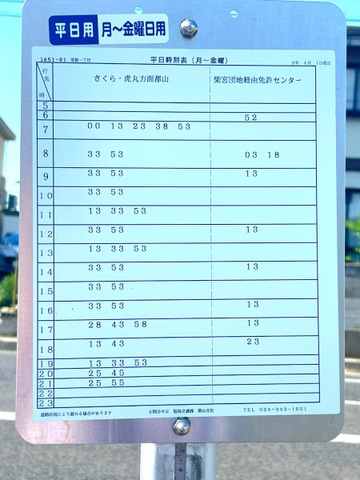 平日用 月～金曜日用
1651-01 平日時刻表(月～金曜)
行先 さくら・虎丸方面郡山 柴宮団地経由免許センター
時
5
6 52
7 00 13 23 38 53
8 33 53 03 18
9 33 53 13
10 33 53
11 13 33 53
12 33 53 13
13 13 33 53
14 33 53 13
15 33 53
16 33 53 13
17 28 43 58 13
18 13 43 23
19 13 33 53
20 25 45
21 25 55
22
23
道路状況により遅れる場合があります お問合せは 福島交通㈱ 郡山支社 TEL 024-943-1651